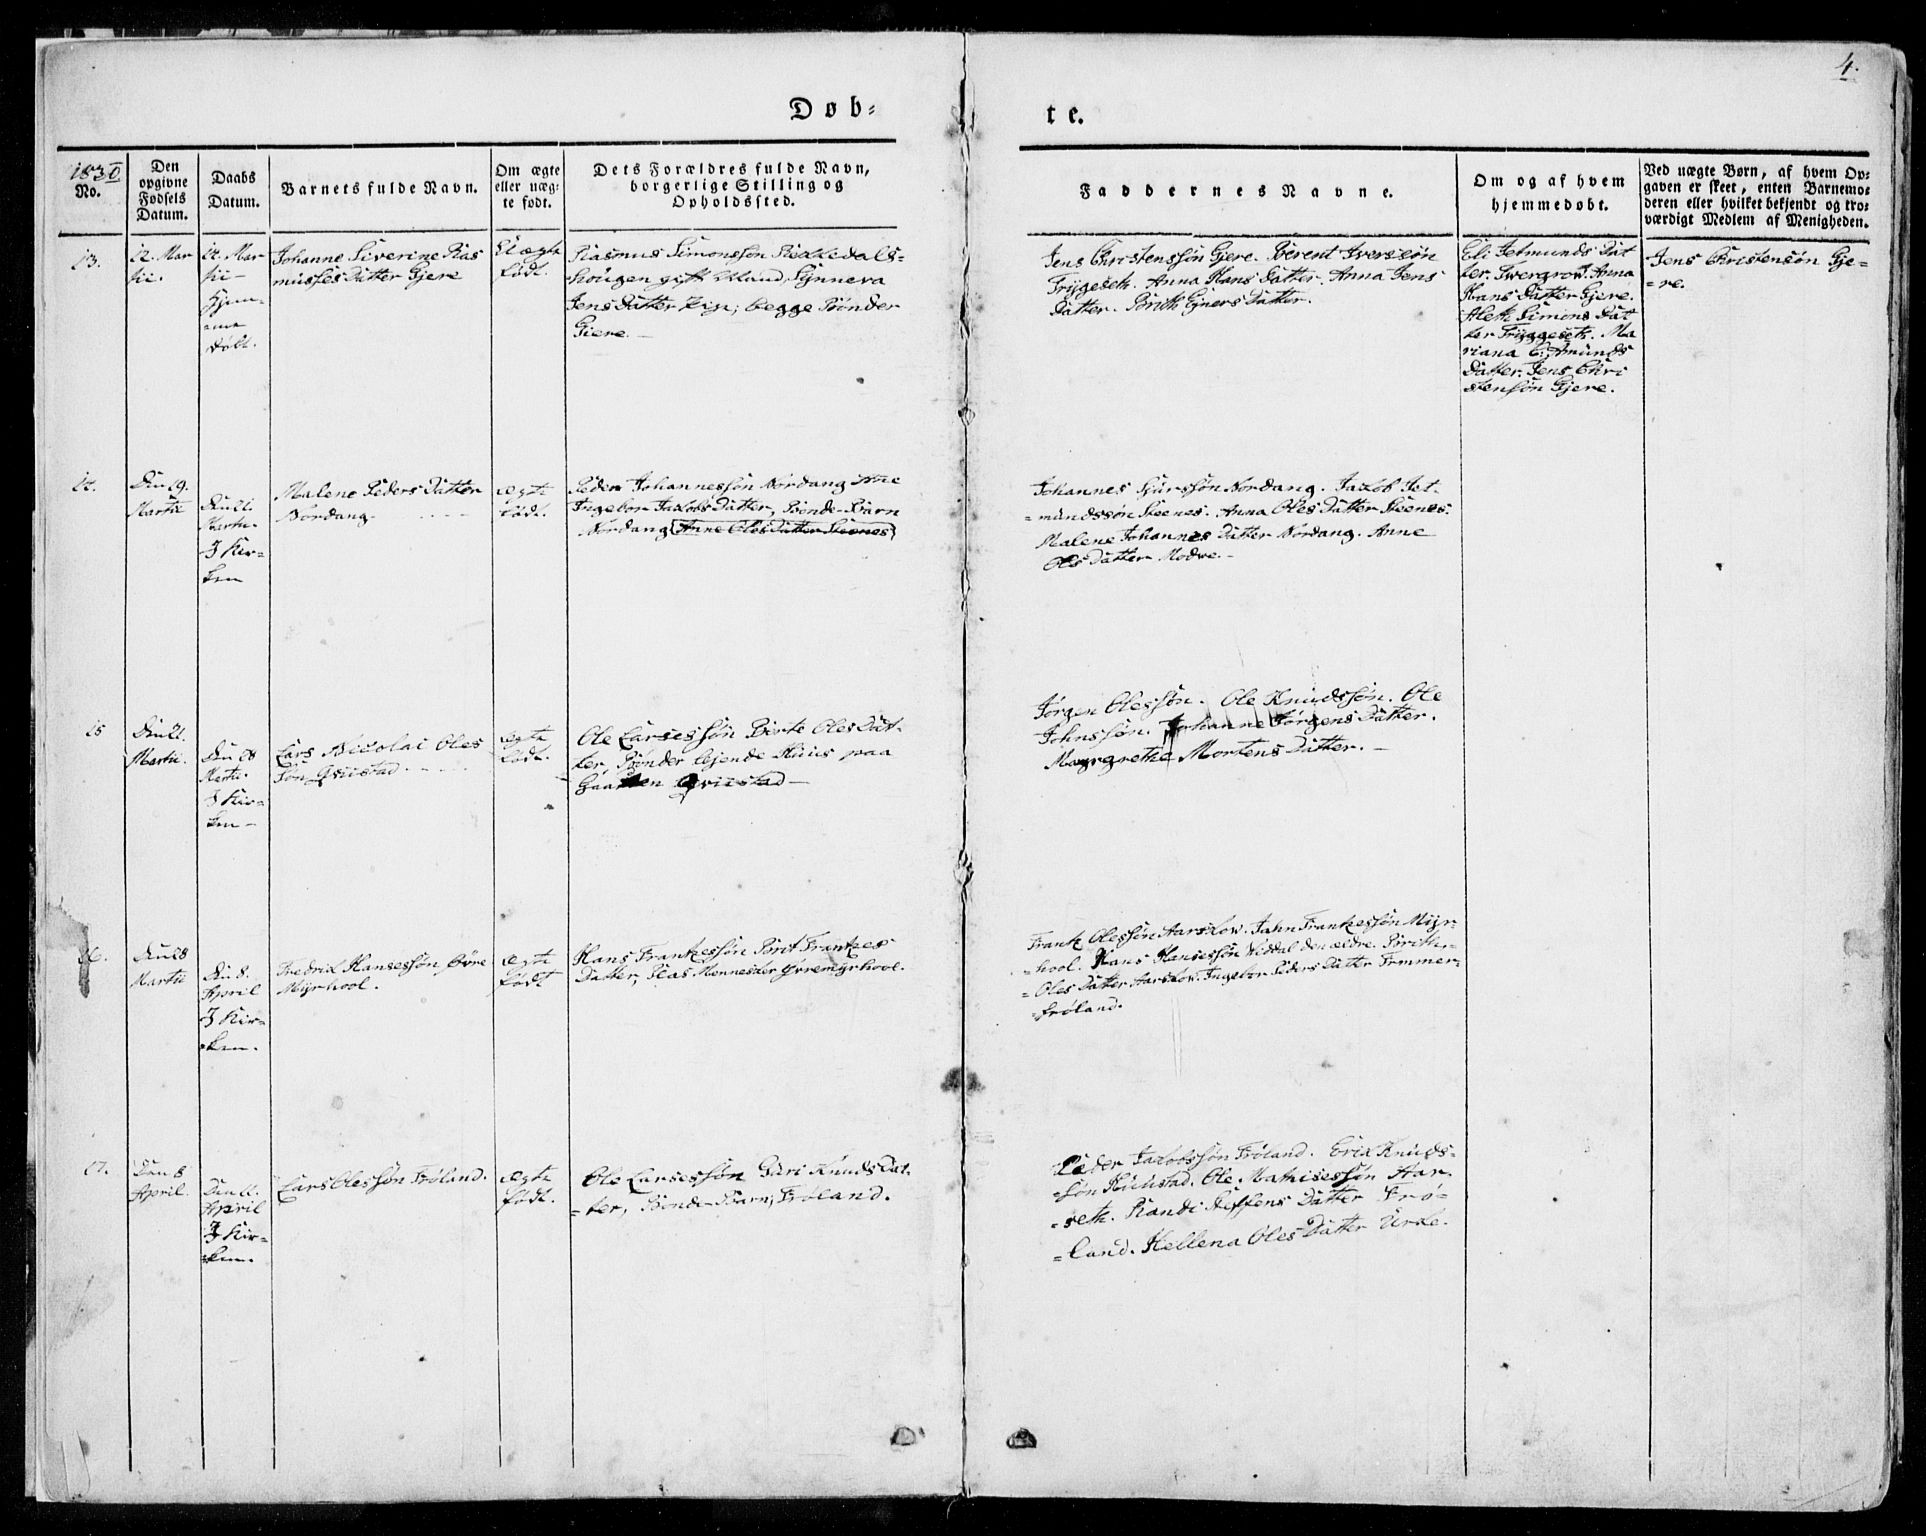 4.
Døb-
te.
1830
No.
Den
opgivne
Fødsels
Datum.
Daabs
Datum.
Barnets fulde Navn.
Om ægte
eller uæg-
te født.
Dets Forældres fulde Navn,
borgerlige Stilling og
Opholdssted.
Faddernes Navne.
Om og af hvem
hjemmedøbt.
Ved uægte Børn, af hvem Op-
gaven er skeet, enten Barnemo-
deren eller hvilket bekjendt og tro-
værdigt Medlem af Menigheden.
23.
12. Mar
tii.
14. Mar-
tii-
Hjem-
me
Døbt.
Johanne Siverine Ras
musses Datter Gjere
Uægte
født.
Rasmus Simonssøn Rekkedals-
hougen gift Mand, Synneva
Jens Datter Pige; begge Bønder
Giere. -
Jens Christenssøn Gjere. Berent Iverssøn
Tryggeseth. Anna Hans Datter. Anna Jens
Datter. Brith Ejners Datter.
Eli Jetmunds Dat
ter. Anna
Hans Datter Gjere.
Aleth Simons Dat
ter Tryggeseth. Ma
riana Amunds
Datter. Jens Chri
stensøn Gjere.
Jens Christensøn Gje=
=re.
24.
Den 19.
Martii
Den 21.
Martii.
I Kir-
ken
Malene Peders Datter
Nordang
ægte
født.
Peder Johannessøn Nordang Ane
Ingebor Jakobs Datter, Bønde-Barn
Nordang (Anne Oles Datter Steenes)
Johannes Sjurssøn Nordang. Jakob Jet-
=mundssøn Steenes. Anna Oles Datter Steenes.
Malene Johannes Datter Nordang. Anne
Oles Datter Modwe. -
25
Den 21.
Martii.
Den 28
Martii.
I Kir=
ken -
Lars Nicolai Oles
Søn Qvistad.
ægte
født.
Ole Larsessøn Berte Oles Dat-
ter Bønder lejende Huus paa
Gaarden Qvistad -
Jørgen Olessøn. Ole Knudssøn. Ole
Johnssøn. Johanne Jørgens Datter.
Margrethe Mortens Datter. -
26.
Den 28
Martii
Den 8.
April
I Kir=
ken.
Fredrik Hansessøn Øvre
Myrhool.
ægte
født
Hans Frantzessøn Brit Frantzes
Datter, Plas-Mennesker Øvremyrhool.
Frantz Olessøn Aarskow. Jahn Frantzessøn Myr-
=hool. Hans Hansessøn Viddal den ældre. Brith
=Oles Datter Aarskow. Ingebor Peders Datter Frmmer-
=frøland.
27.
Den 8
April.
Den 11.
April
I Kir=
ken.
Lars Olessøn Frøland.
ægte
født.
Ole Larsessøn Guri Knuds Dat-
=ter, Bønde-Barn, Frøland.
Peder Jakobssøn Frøland. Erik Knuds-
=søn Ole Mathisessøn Aar-
=seth. Randi Steffens Datter Frø-
=land. Hellena Oles Datter Urke.